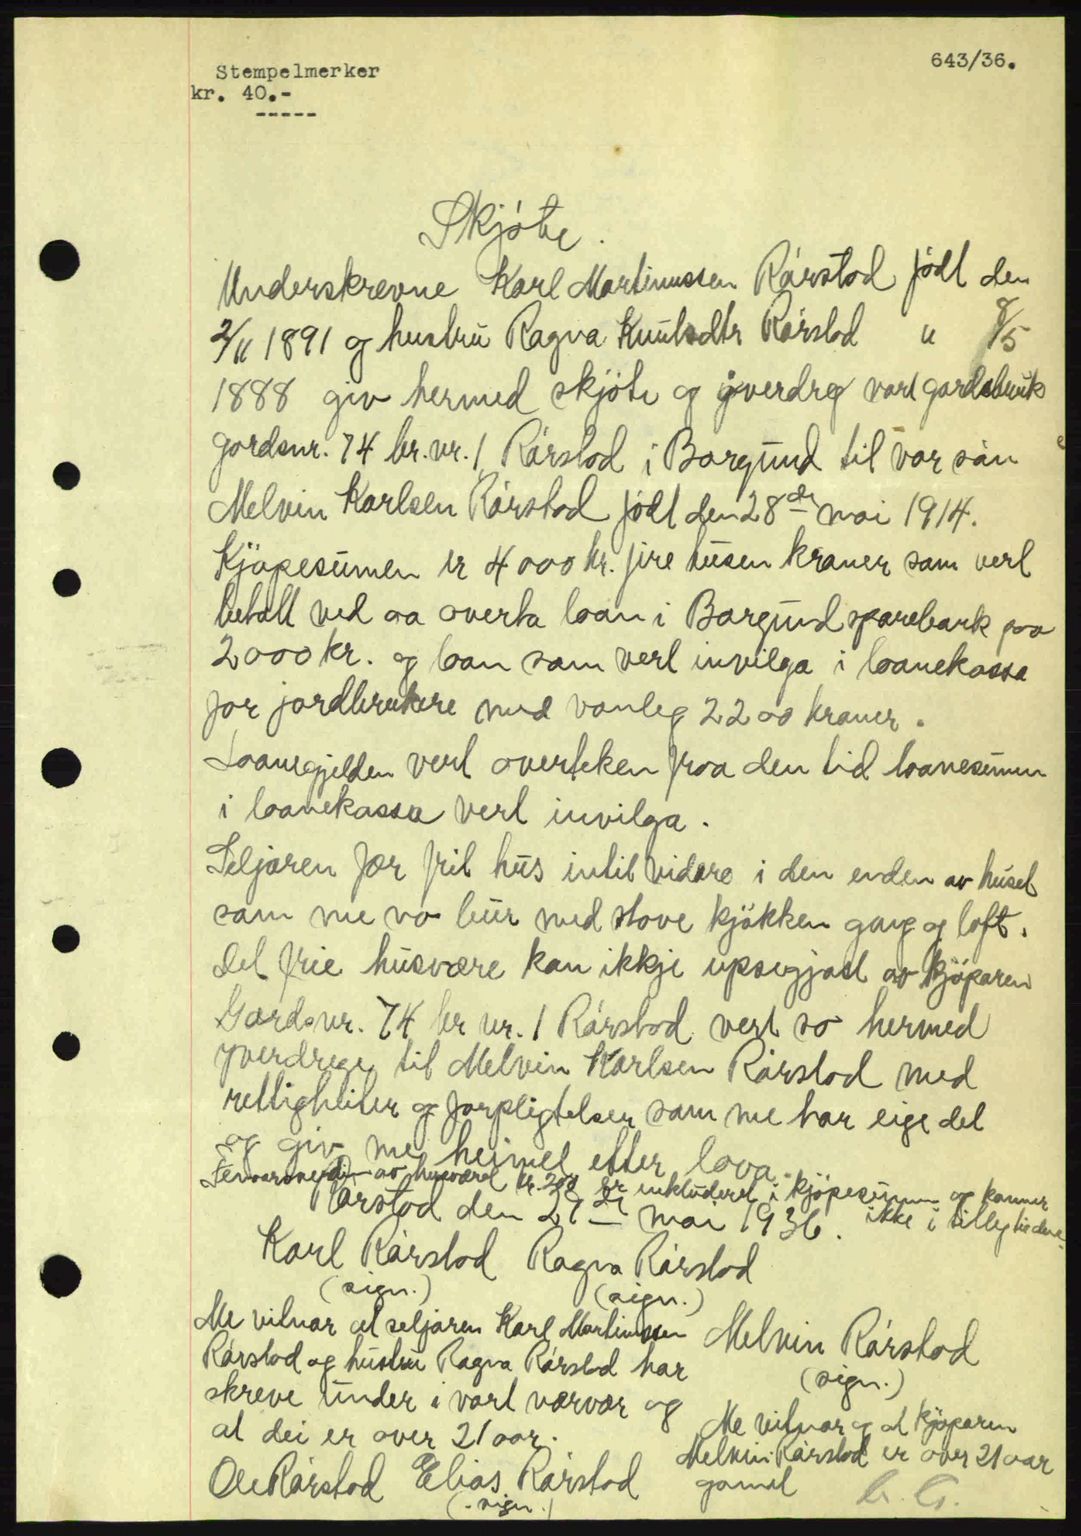 643/36.
Stempelmerker
kr. 40.-
-----
Skjöte.
Underskrevne Karl Martinussen Rörstad född den
2/11 1891 og hustru Ragna Knutsdtr Rörstad " 8/5
1888 giv hermed skjöte og yverdreg vart gardsbruk
gardsnr. 74 br.nr. 1 Rörstad i Borgund til vor sön
Melvin Karlsen Rörstad född den 28de mai 1914.
Kjöpesumen er 4000 kr. fire tusen kroner som vert
betalt ved aa overta loan i Borgund sparebank paa
2000 kr. og loan som vert invilga i loanekassa
for jordbrukere med vanleg 2200 kroner.
Loanegjelden vert overteken fraa den tid loanesumen
i loanekassa vert invilga.
Seljaren fær frit hus intil vidare i den enden av huset
som me no bur med stove kjökken gang og loft.
Det frie husvære kan ikkje upsegjast av kjöparen
Gardsnr. 74 br nr. 1 Rörstad vert so hermed
yverdrege til Melvin Karlsen Rörstad med
rettigheiter og forpligtelser som me har eige det
og giv me heimel etter lova.
av husværet kr. 200 er inkluderet i kjöpesumen og kommer
ikke i tilleg til denne.
Rörstad den 27de mai 1936.
Karl Rörstad Ragna Rörstad
(sign.) (sign.)
Me vitnar at seljaren Karl Martinussen
Rörstad og hustru Ragna Rörstad har
skreve under i vart nærvær og
at dei er over 21 aar.
Ole Rörstad Elias Rörstad
(sign.)
Melvin Rörstad
(sign.)
Me vitnar og at kjöparen
Melvin Rörstad er over 21 aar
gamal